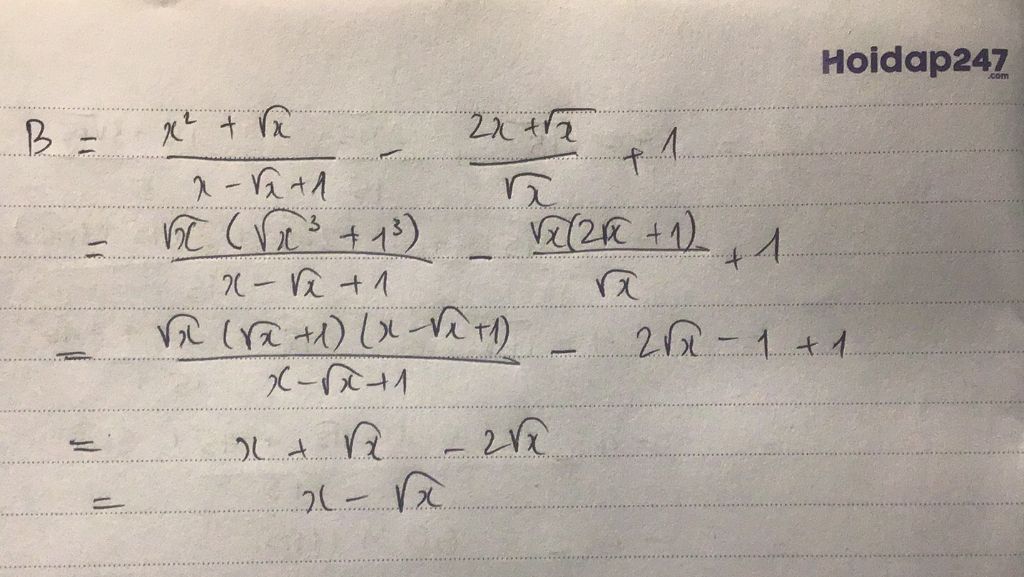 Hoidap247
.com
B = (x² + √x)/(x - √x + 1) - (2x + √x)/√x + 1
= √x (√x³ + 1³)/(x - √x + 1) - √x(2√x + 1)/√x + 1
= √x (√x + 1) (x - √x + 1)/(x - √x + 1) - 2√x - 1 + 1
= x + √x - 2√x
= x - √x